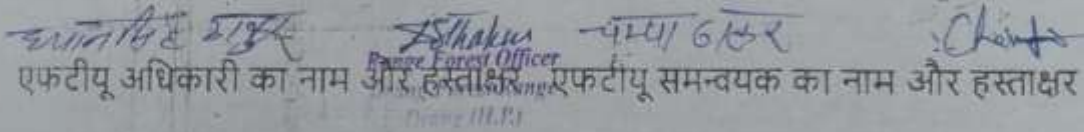 ध्यान सिंह ठाकुर DSThakur चम्पा ठाकुर
Range Forest Officer
एफटीयू अधिकारी का नाम और हस्ताक्षर एफटीयू समन्वयक का नाम और हस्ताक्षर
(H.P.)